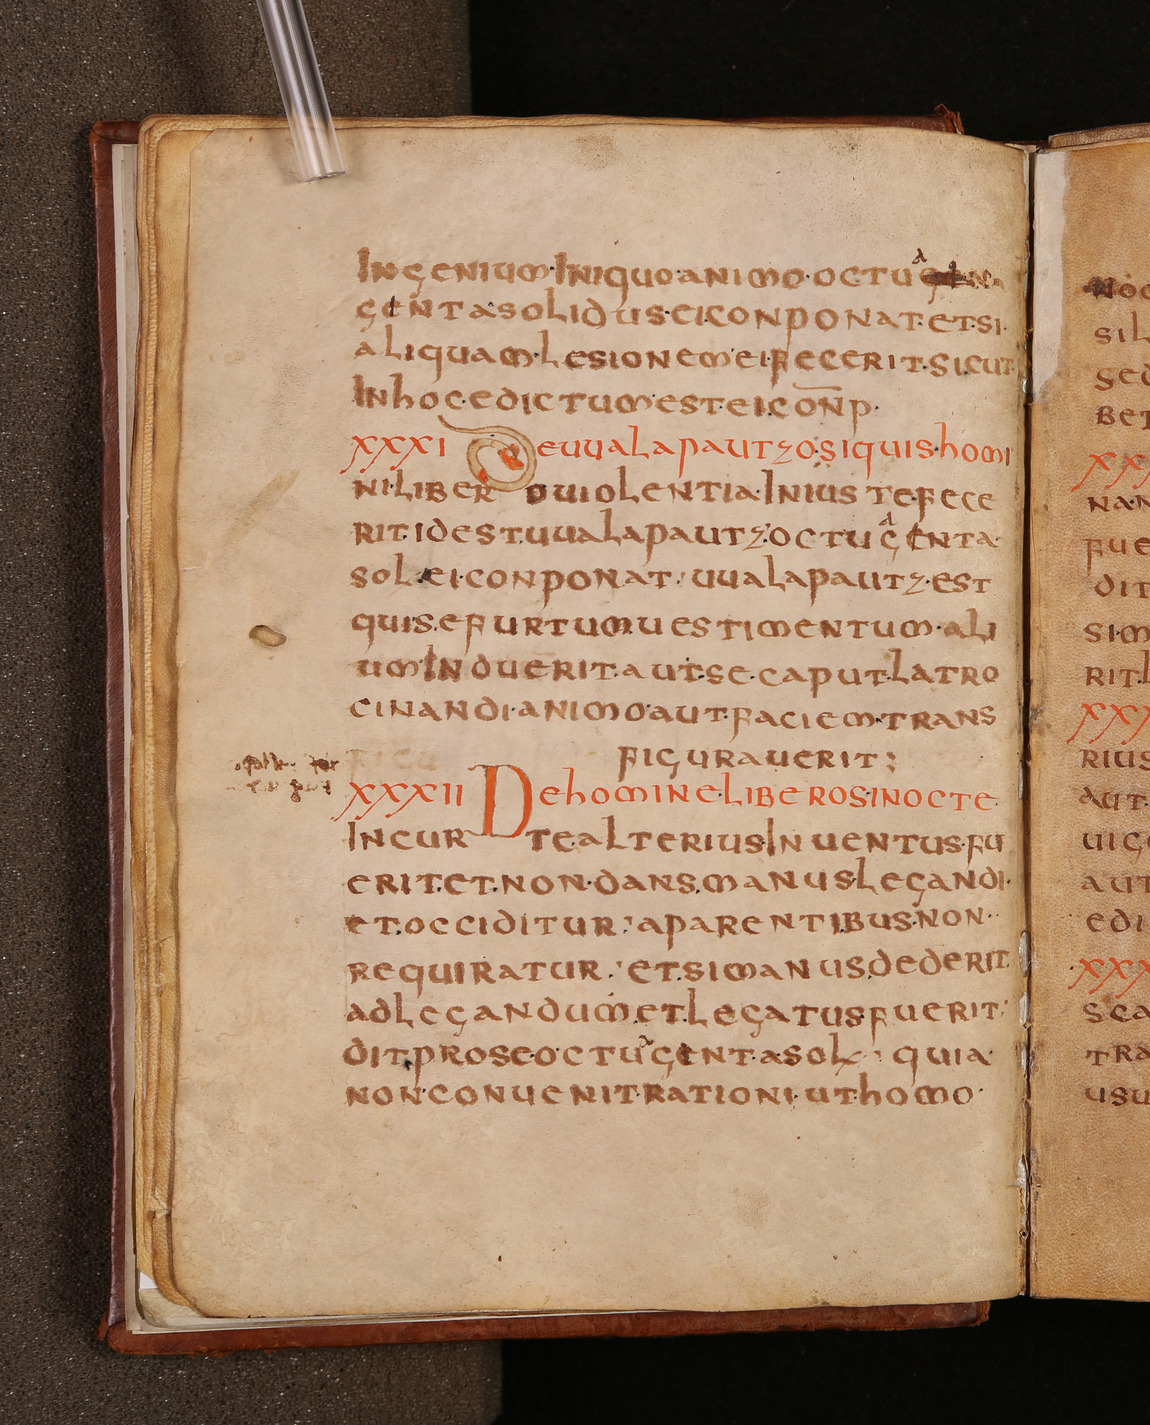 INGENIUM·INIQUO·ANIMO·OCTUA
GENTA SOLIDUS·EI·CONPONAT·ET·SI·
ALIQUAM·LESIONEM·EI·FECERIT·SICUT
IN hOC·EDICTUM·EST·EI·CON̄P·
XXXI DE UUALAPAUTZ·OSIQUIS·hOMI
NI·LIBERO UIOLENTIA·INIUSTE·FECE
RIT·ID EST·UUALAPAUTZ·OCTUAGENTA·
SOL·EI·CONPONAT: UUALAPAUTZ·EST
QUIS·E FURTUM·UESTIMENTUM·ALI
UM INDUERIT·AUT·SE·CAPUT·LATRO
CINANDI·ANIMO·AUT·FACIEM·TRANS
FIGURAUERIT:
XXXII DE hOMINE·LIBEROS·INOCTE·
IN CURTE ALTERIUS·INUENTUS·FU
ERIT·ET·NON·DANS·MANUS·LEGANDI·
ET·OCCIDITUR:' A PARENTIBUS·NON··
REQUIRATUR·:' ET·SI MANUS·DEDERIT
AD LEGANDUM·ET·LEGATUS·FUERIT·'
DIT·PRO SE·OCTUAGENTA SOL· QUIA
NON·CONUENIT·RATIONI·UT hOMO·
NOC
SIL
GED
BET
XXX
NAN
FUE
DIT
SI·M
RIT·L
XXX
RIUS
AUT·
UIG
AUT
EDI
XXX
SCA
TRA
USU